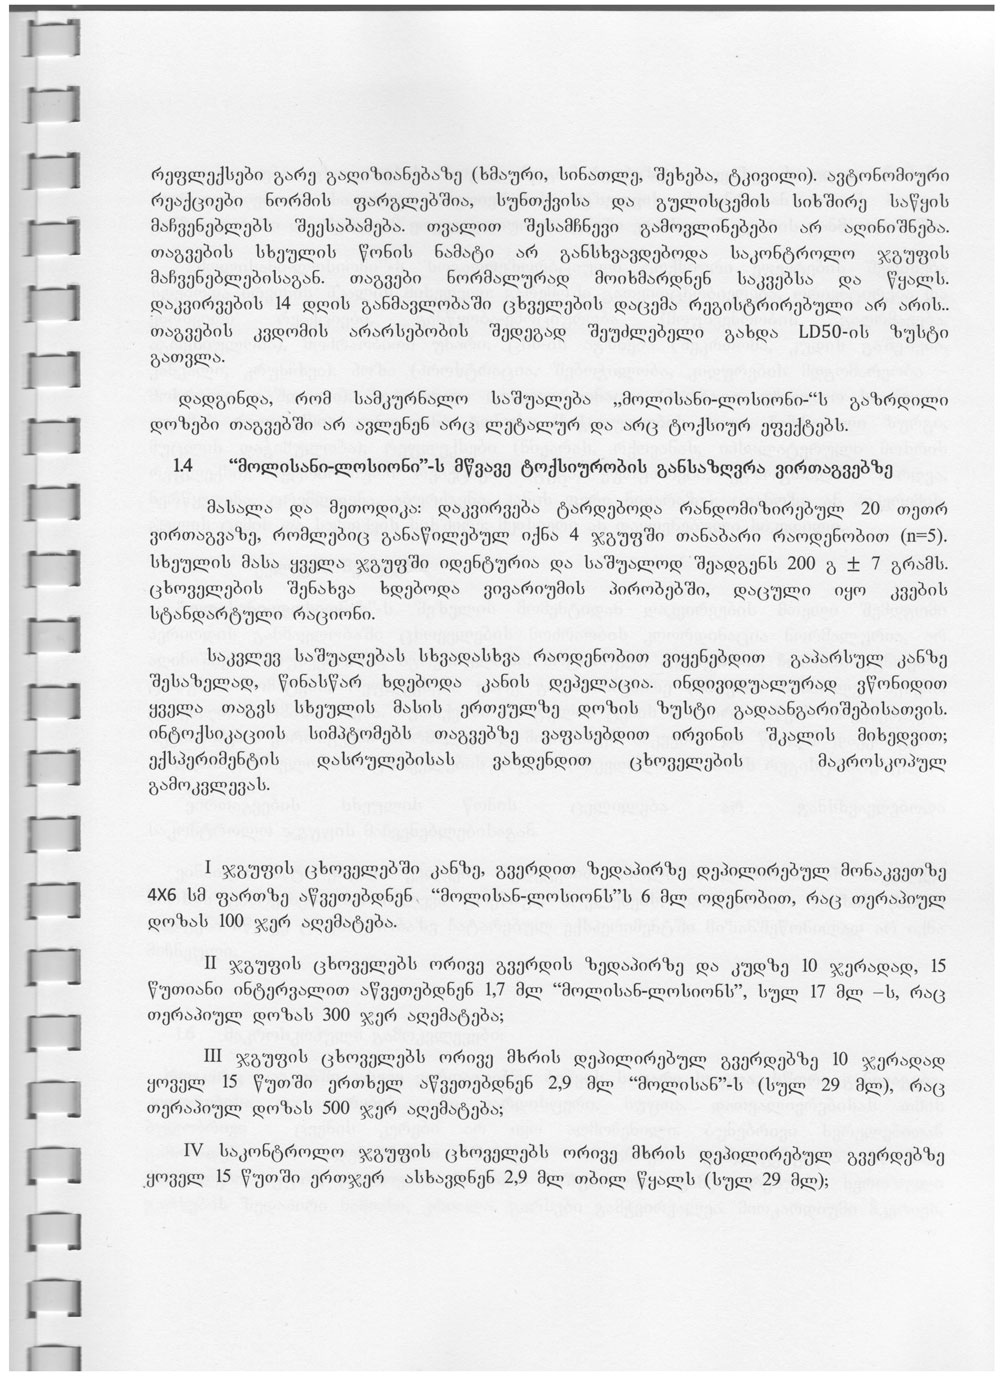 რეფლექსები გარე გაღიზიანებაზე (ხმაური, სინათლე, შეხება, ტკივილი). ავტონომიური
რეაქციები ნორმის ფარგლებშია, სუნთქვისა და გულისცემის სიხშირე საწყის
მაჩვენებლებს შეესაბამება. თვალით შესამჩნევი გამოვლინებები არ აღინიშნება.
თაგვების სხეულის წონის ნამატი არ განსხვავდებოდა საკონტროლო ჯგუფის
მაჩვენებლებისაგან. თაგვები ნორმალურად მოიხმარდნენ საკვებსა და წყალს.
დაკვირვების 14 დღის განმავლობაში ცხველების დაცემა რეგისტრირებული არ არის..
თაგვების კვდომის არარსებობის შედეგად შეუძლებელი გახდა LD50-ის ზუსტი
გათვლა.
დადგინდა, რომ სამკურნალო საშუალება „მოლისანი-ლოსიონი-“ს გაზრდილი
დოზები თაგვებში არ ავლენენ არც ლეტალურ და არც ტოქსიურ ეფექტებს.
1.4 “მოლისანი-ლოსიონი”-ს მწვავე ტოქსიურობის განსაზღვრა ვირთაგვებზე
მასალა და მეთოდიკა: დაკვირვება ტარდებოდა რანდომიზირებულ 20 თეთრ
ვირთაგვაზე, რომლებიც განაწილებულ იქნა 4 ჯგუფში თანაბარი რაოდენობით (n=5).
სხეულის მასა ყველა ჯგუფში იდენტურია და საშუალოდ შეადგენს 200 გ ± 7 გრამს.
ცხოველების შენახვა ხდებოდა ვივარიუმის პირობებში, დაცული იყო კვების
სტანდარტული რაციონი.
საკვლევ საშუალებას სხვადასხვა რაოდენობით ვიყენებდით გაპარსულ კანზე
შესაზელად, წინასწარ ხდებოდა კანის დეპელაცია. ინდივიდუალურად ვწონიდით
ყველა თაგვს სხეულის მასის ერთეულზე დოზის ზუსტი გადაანგარიშებისათვის.
ინტოქსიკაციის სიმპტომებს თაგვებზე ვაფასებდით ირვინის შკალის მიხედვით;
ექსპერიმენტის დასრულებისას ვახდენდით ცხოველების მაკროსკოპულ
გამოკვლევას.
I ჯგუფის ცხოველებში კანზე, გვერდით ზედაპირზე დეპილირებულ მონაკვეთზე
4X6 სმ ფართზე აწვეთებდნენ “მოლისან-ლოსიონს”ს 6 მლ ოდენობით, რაც თერაპიულ
დოზას 100 ჯერ აღემატება.
II ჯგუფის ცხოველებს ორივე გვერდის ზედაპირზე და კუდზე 10 ჯერადად, 15
წუთიანი ინტერვალით აწვეთებდნენ 1,7 მლ “მოლისან-ლოსიონს”, სულ 17 მლ –ს, რაც
თერაპიულ დოზას 300 ჯერ აღემატება;
III ჯგუფის ცხოველებს ორივე მხრის დეპილირებულ გვერდებზე 10 ჯერადად
ყოველ 15 წუთში ერთხელ აწვეთებდნენ 2,9 მლ “მოლისან”-ს (სულ 29 მლ), რაც
თერაპიულ დოზას 500 ჯერ აღემატება;
IV საკონტროლო ჯგუფის ცხოველებს ორივე მხრის დეპილირებულ გვერდებზე
ყოველ 15 წუთში ერთჯერ ასხავდნენ 2,9 მლ თბილ წყალს (სულ 29 მლ);